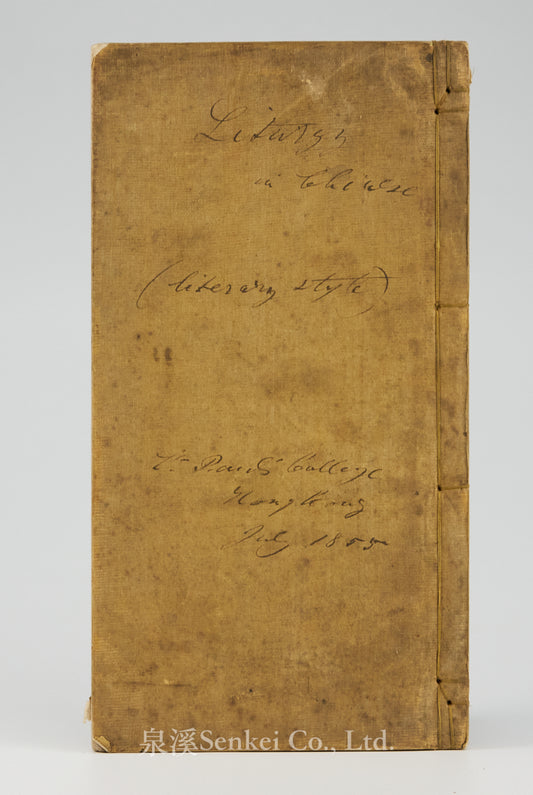 Liturgy
in Chinese
(literary style)
St Paul's College
Hong Kong
July 1855
泉溪Senkei Co., Ltd.